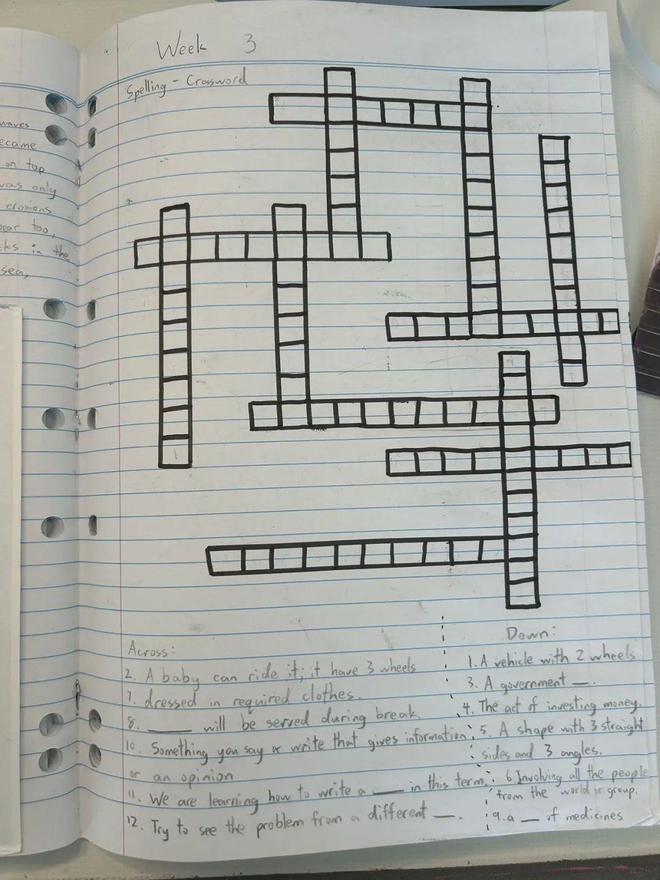 Week 3
Spelling - Crossword
waves
became
on top
was only
erosions
too
in the
sea,
Across:
2. A baby can ride it; it have 3 wheels
7. dressed in required clothes.
8. ____ will be served during break.
10. Something you say or write that gives information
or an opinion
11. We are learning how to write a ___ in this term.
12. Try to see the problem from a different __.
Down:
1. A vehicle with 2 wheels
3. A government __.
4. The act of investing money.
5. A shape with 3 straight
sides and 3 angles.
6. Involving all the people
from the world or group.
9. a __ of medicines